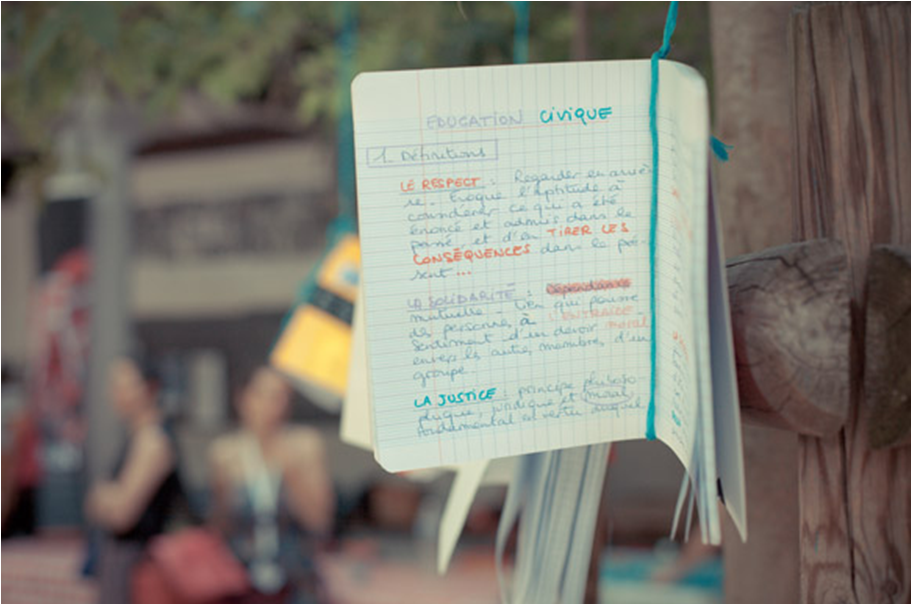 EDUCATION CIVIQUE
1_ Définitions
LE RESPECT : Regarder en arriè-
re. Evoque l'aptitude à
considérer ce qui a été
énoncé et admis dans le
passé, et d'en TIRER LES
CONSÉQUENCES dans le pré-
sent ...
LA SOLIDARITÉ : Dépendance
mutuelle - lien qui pousse
des personnes à L'ENTRAIDE.
Sentiment d'un devoir moral
envers les autres membres d'un
groupe.
LA JUSTICE : principe philoso
phique, juridique et moral
fondamental en vertu duquel